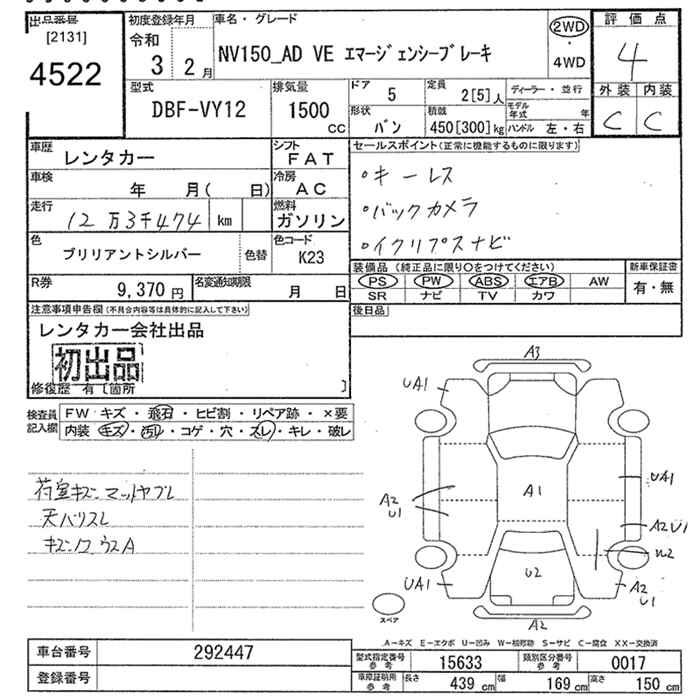 出品番号 初度登録年月 車名・グレード 評価点
[2131] 令和 2WD
4522 3 2月 NV150_AD VE エマージェンシーブレーキ ・ 4
4WD
型式 排気量 ドア 5 定員 2[5]人 ディーラー・並行 外装 内装
DBF-VY12 1500 cc 形状 バン 積載 450[300]kg モデル年式 年 C C
ハンドル 左・右
車歴 レンタカー シフト FAT セールスポイント(正常に機能するものに限ります)
車検 年 月( 日) 冷房 AC ・キーレス
走行 12万3千474 km 燃料 ガソリン ・バックカメラ
色 ブリリアントシルバー 色替 色コード K23 ・イクリプスナビ
R券 9,370円 名変通知期限 月 日 装備品(純正品に限り○をつけてください) 新車保証書
PS PW ABS エアB AW 有・無
SR ナビ TV カワ
注意事項申告欄(不具合内容等は具体的に記入して下さい) 後日品
レンタカー会社出品
初出品
修復歴 有[箇所 ]
検査員記入欄 FW キズ・飛石・ヒビ割・リペア跡・×要
内装 キズ・汚れ・コゲ・穴・スレ・キレ・破レ
荷室キズ マットヤブレ
天バリスレ
A3
UA1
A1
UA1
A2
U1
A2U1
U2
UA1
U2
A2
U1
A2
スペア
A-キズ E-エクボ U-凹み W-補修跡 S-サビ C-腐食 XX-交換済
車台番号 292447 型式指定番号 参考 15633 類別区分番号 参考 0017
登録番号 車庫証明用 参考 長さ 439 cm 幅 169 cm 高さ 150 cm